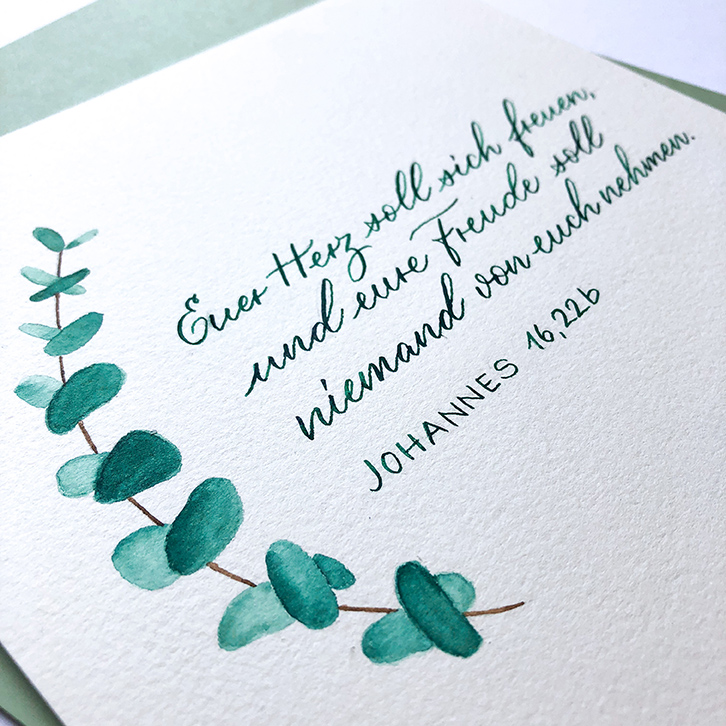 Euer Herz soll sich freuen,
und eure Freude soll
niemand von euch nehmen.
JOHANNES 16,22b